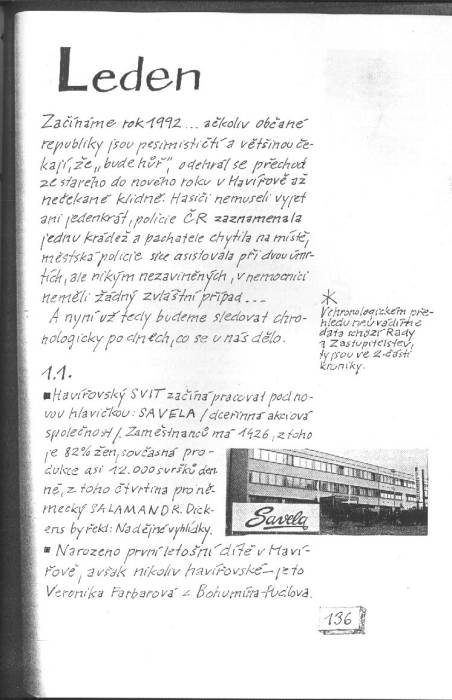 Leden
Začínáme rok 1992... ačkoliv občané
republiky jsou pesimističtí a většinou če-
kají, že „bude hůř", odehrál se přechod
ze starého do nového roku v Havířově až
nečekaně klidně. Hasiči nemuseli vyjet
ani jedenkrát, policie ČR zaznamenala
jednu krádež a pachatele chytila na místě,
městská policie sice asistovala při dvou úmr-
tích, ale nikým nezaviněných, v nemocnici
neměli žádný zvláštní případ...
A nyní už tedy budeme sledovat chro-
nologicky po dnech, co se u nás dělo.
*
V chronologickém pře-
hledu neuvádíme
data schůzí Rady
a Zastupitelstev,
ty jsou ve 2. části
kroniky.
1.1.
■ Havířovský SVIT začíná pracovat pod no-
vou hlavičkou: SAVELA /dceřinná akciová
společnost/. Zaměstnanců má 1426, z toho
je 82% žen, současná pro-
dukce asi 12.000 svršků den
ně, z toho čtvrtina pro ně-
mecký SALAMANDR. Dick-
ens by řekl: Nadějné vyhlídky.
Savela
■ Narozeno první letošní dítě v Haví-
řově, avšak nikoliv havířovské – je to
Veronika Farbarová z Bohumína-Pudlova.
136